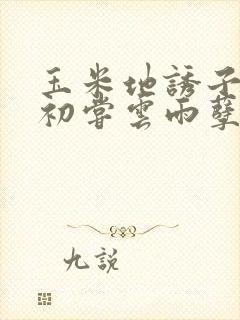 玉米地誘子
初嘗雲雨孽
九説